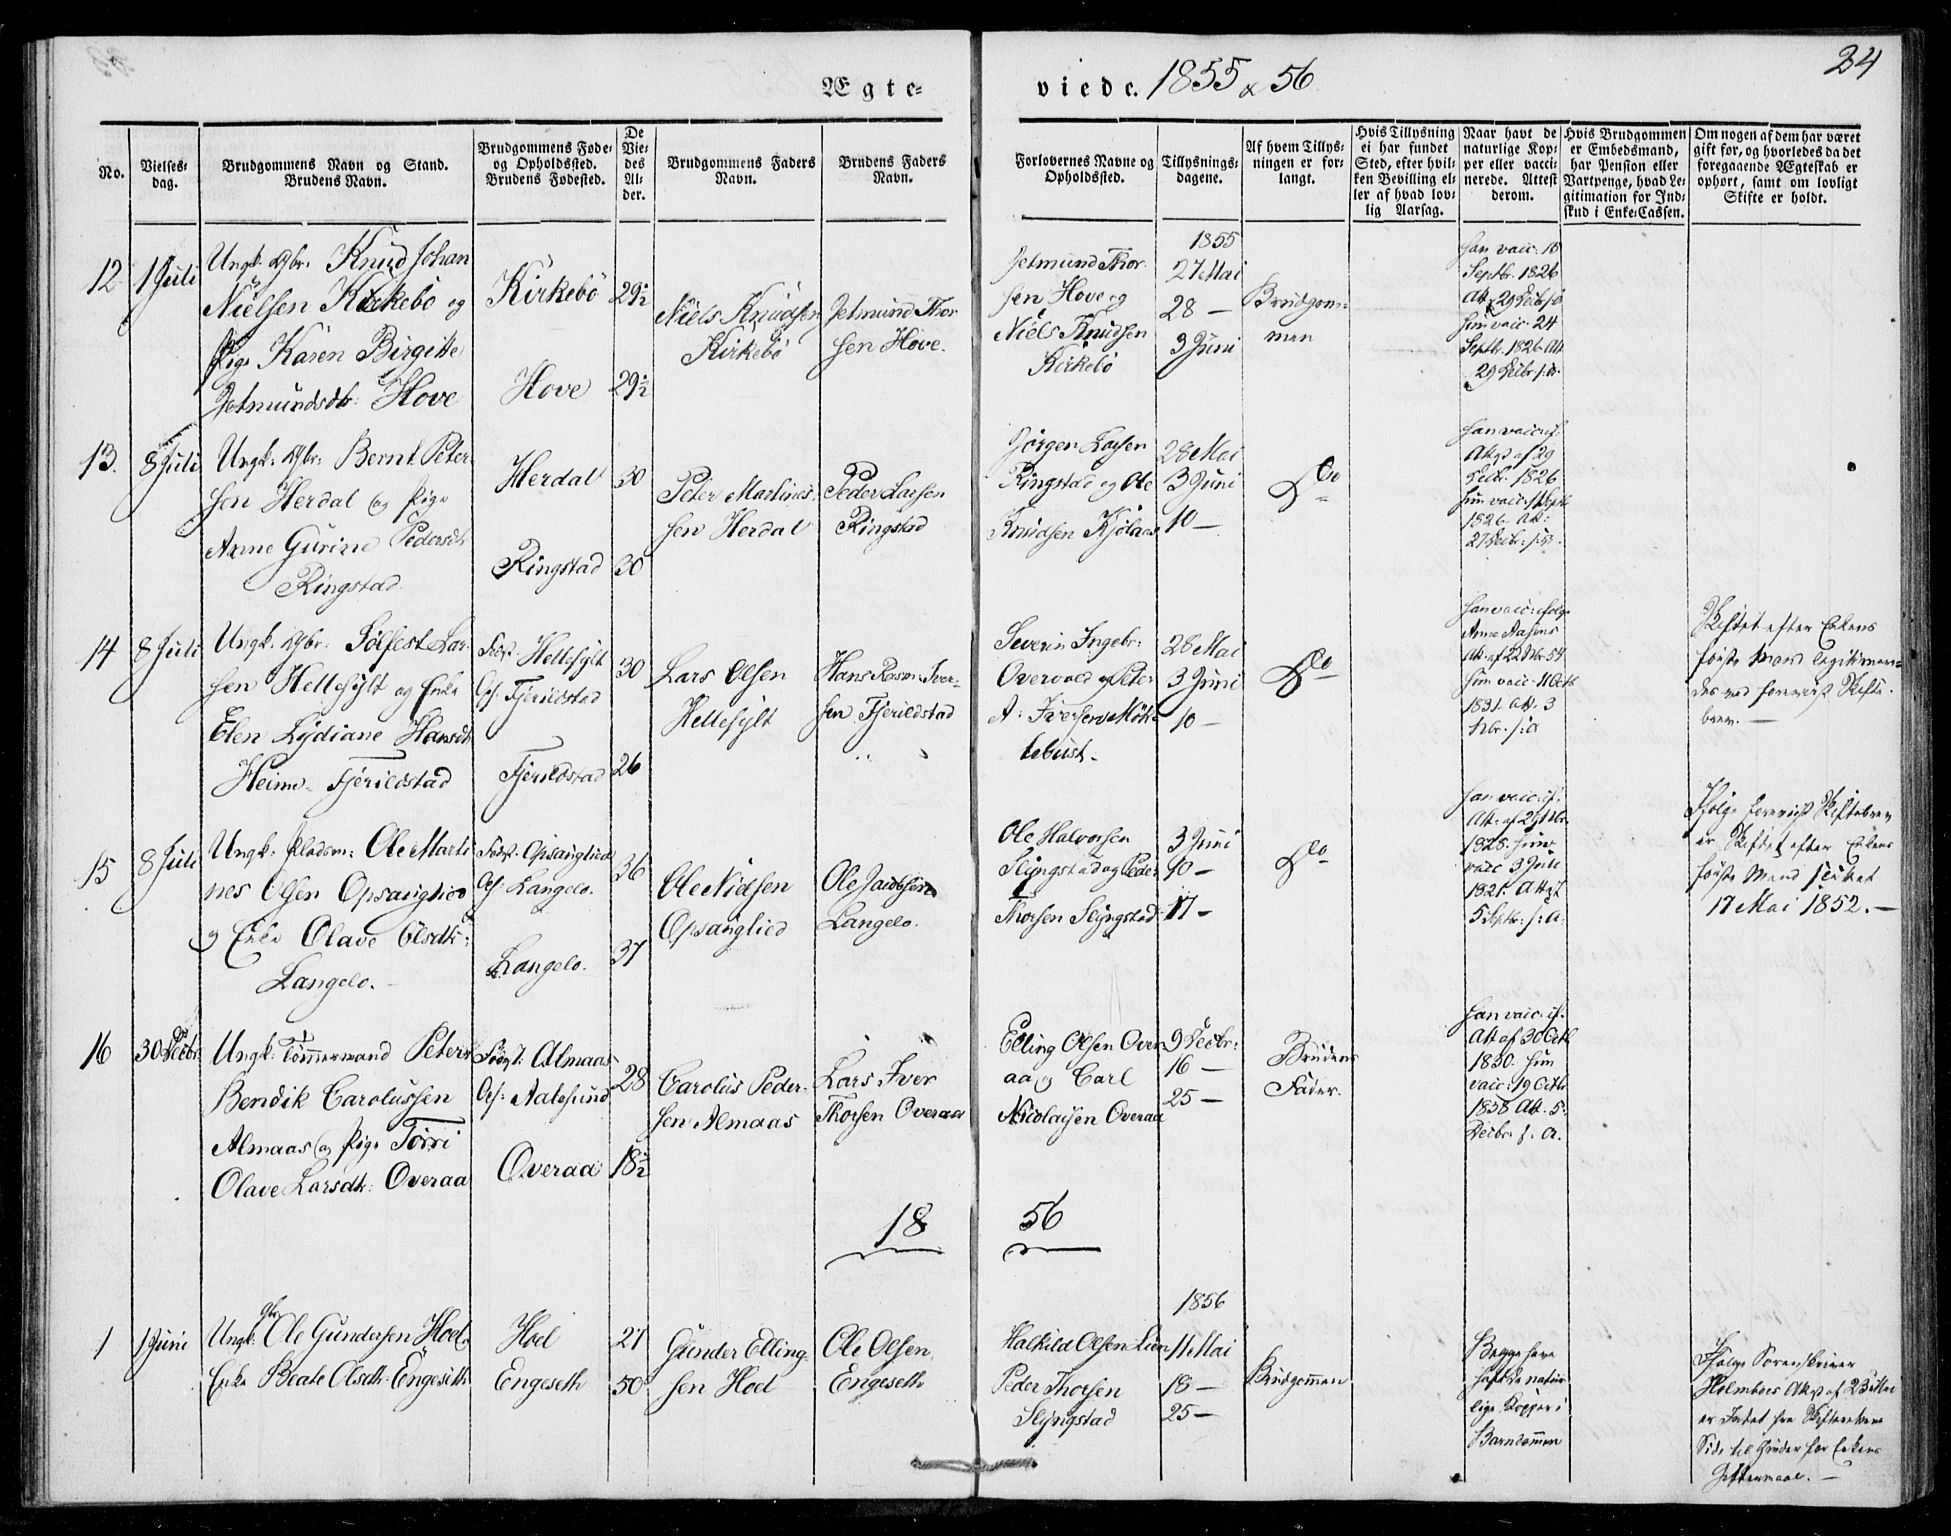 24
Ægte-
viede. 1855 & 56
No.
Vielses-
dag.
Brudgommens Navn og Stand.
Brudens Navn.
Brudgommens Føde-
og Opholdssted.
Brudens Fødested.
De
Vie-
des
Al-
der.
Brudgommens Faders
Navn.
Brudens Faders
Navn.
Forlovernes Navne og
Opholdssted.
Tillysnings-
dagene.
Af hvem Tillys-
ningen er for-
langt.
Hvis Tillysning
ei har fundet
Sted, efter hvil-
ken Bevilling el-
ler af hvad lov-
lig Aarsag.
Naar havt de
naturlige Kop-
per eller vacci-
nerede. Attest
derom.
Hvis Brudgommen
er Embedsmand,
har Pension eller
Vartpenge, hvad Le-
gitimation for Ind-
skud i Enke-Cassen.
Om nogen af dem har været
gift før, og hvorledes da det
foregaaende Ægteskab er
ophørt, samt om lovligt
Skifte er holdt.
12 1 Juli
Ungk. Gbr. Knud Johan
Nielsen Kirkebö og
Pige Karen Birgitte
Jetmundsdtr: Hove
Kirkebö
Hove
29½
29½
Niels Knudsen
Kirkebö
Jetmund Thor
sen Hove.
Jetmund Thor-
sen Hove og
Niels Knudsen
Kirkebö
1855
27 Mai
28 —
3 Juni
Brudgom-
men
Han vacc. 16
Septbr. 1826
Att. 29 Decbr s: a
Hun vacc. 24
Septbr. 1826 Att
29 Decbr s: a.
13. 8 Juli
Ungk: Gbr: Bernt Peter-
sen Herdal og Pige
Anne Gurine Pedersdtr
Ringstad
Herdal
Ringstad
30
30
Peter Martinus-
sen Herdal
Peder Larsen
Ringstad
Jörgen Larsen
Ringstad og Ole
Knudsen Kjölaas
28 Mai
3 Juni
10 —
Do
Han vacc. if.
Att af 29
Decbr. 1826
1826 Att:
27 Decbr: s: a.
14 8 Juli
Ungk. Gbr. Sölfest Lar-
sen Hellesylt og Enke
Elen Lydiane Hansdtr
Heime- Fjerildstad
Födst. Hellesylt
Oph. Fjerildstad
Fjerildstad
30
26
Lars Olsen
Hellesylt
Hans Rasm. Iver-
sen Fjerildstad
Severin Ingebr:
Overvold og Peter
A: Iversen Mök-
lebust.
28 Mai
3 Juni
10 —
Do
Han vacc: ifølge
Anne Aasens
Hun vacc. 11 Octb
1831. Att. 3
Nbr. s: a
Skiftet efter Enkens
første Mand legitimere-
des ved foreviist Skifte-
brev. —
15 8 Juli
Ungk. Pladsm: Ole Marti
nes Olsen Opsanglied
og Enke Olave Olsdtr:
Langelo.
Födst. Opsanglied
Oph. Langelo.
Langelo.
36
37
Ole Nielsen
Opsanglied
Ole Jacobsen
Langelo.
Ole Halvorsen
Slyngstad og Peder
Thorsen Slyngstad
3 Juni
10 —
17 —
Do
Han vacc: if.
1828. Hun
vacc 3 Juli
1821. Att af
5 Septbr: s: a.
Ifølge foreviist Skiftebrev
er Skiftet efter Enkens
første Mand sluttet
17 Mai 1852. —
16 30 Decbr.
Ungk: Tömmermand Peter
Bendik Carolussen
Almaas og Pige Torri
Olave Larsdtr: Overaa
Födst: Almaas
Oph: Aalesund
Overaa
28
18½
Carolus Peder-
sen Almaas
Lars Iver
Thorsen Overaa
Elling Olsen Over
aa og Carl
Nicolaisen Overaa
9 Decbr:
16 —
25 —
Brudens
Fader.
Han vacc. if.
Att af 30 Octb
1830. Hun
vacc: 19 Octb
1838 Att. 5
Decbr. s. a.
18 56
1 1 Juni
Ungk: Gbr Ole Gundersen Hoel og
Enke Beate Olsdtr Engeseth
Hoel
Engeseth
27
50
Gunder Elling-
sen Hoel
Ole Olsen
Engeseth
Halkild Olsen Lien
Peder Thorsen
Slyngstad
1856
11 Mai
18 —
25 —
Brudgommen
Begge have
havt de natur
lige Kopper i
Barndommen
Ifølge Sorenskriver
Holmboes Att af 23 Mai
er Intet fra Skifterettens
Side til Hinder for Enkens
Giftermaal. —